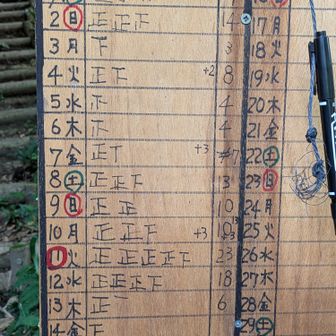 2 日 正正正下 14 17 月
3 月 下 18 火
4 火 正下 +2 8 19 水
5 水 下 4 20 木
6 木 下 4 21 金
7 金 正丅 +3 7 22 土
8 土 正正下 3 23 日
9 日 正正 10 24 月
10 月 正正下 +3 13 25 火
11 火 正正正正下 23 26 水
12 水 正正正下 18 27 木
3 木 正一 6 28 金
4 金 下 29 土